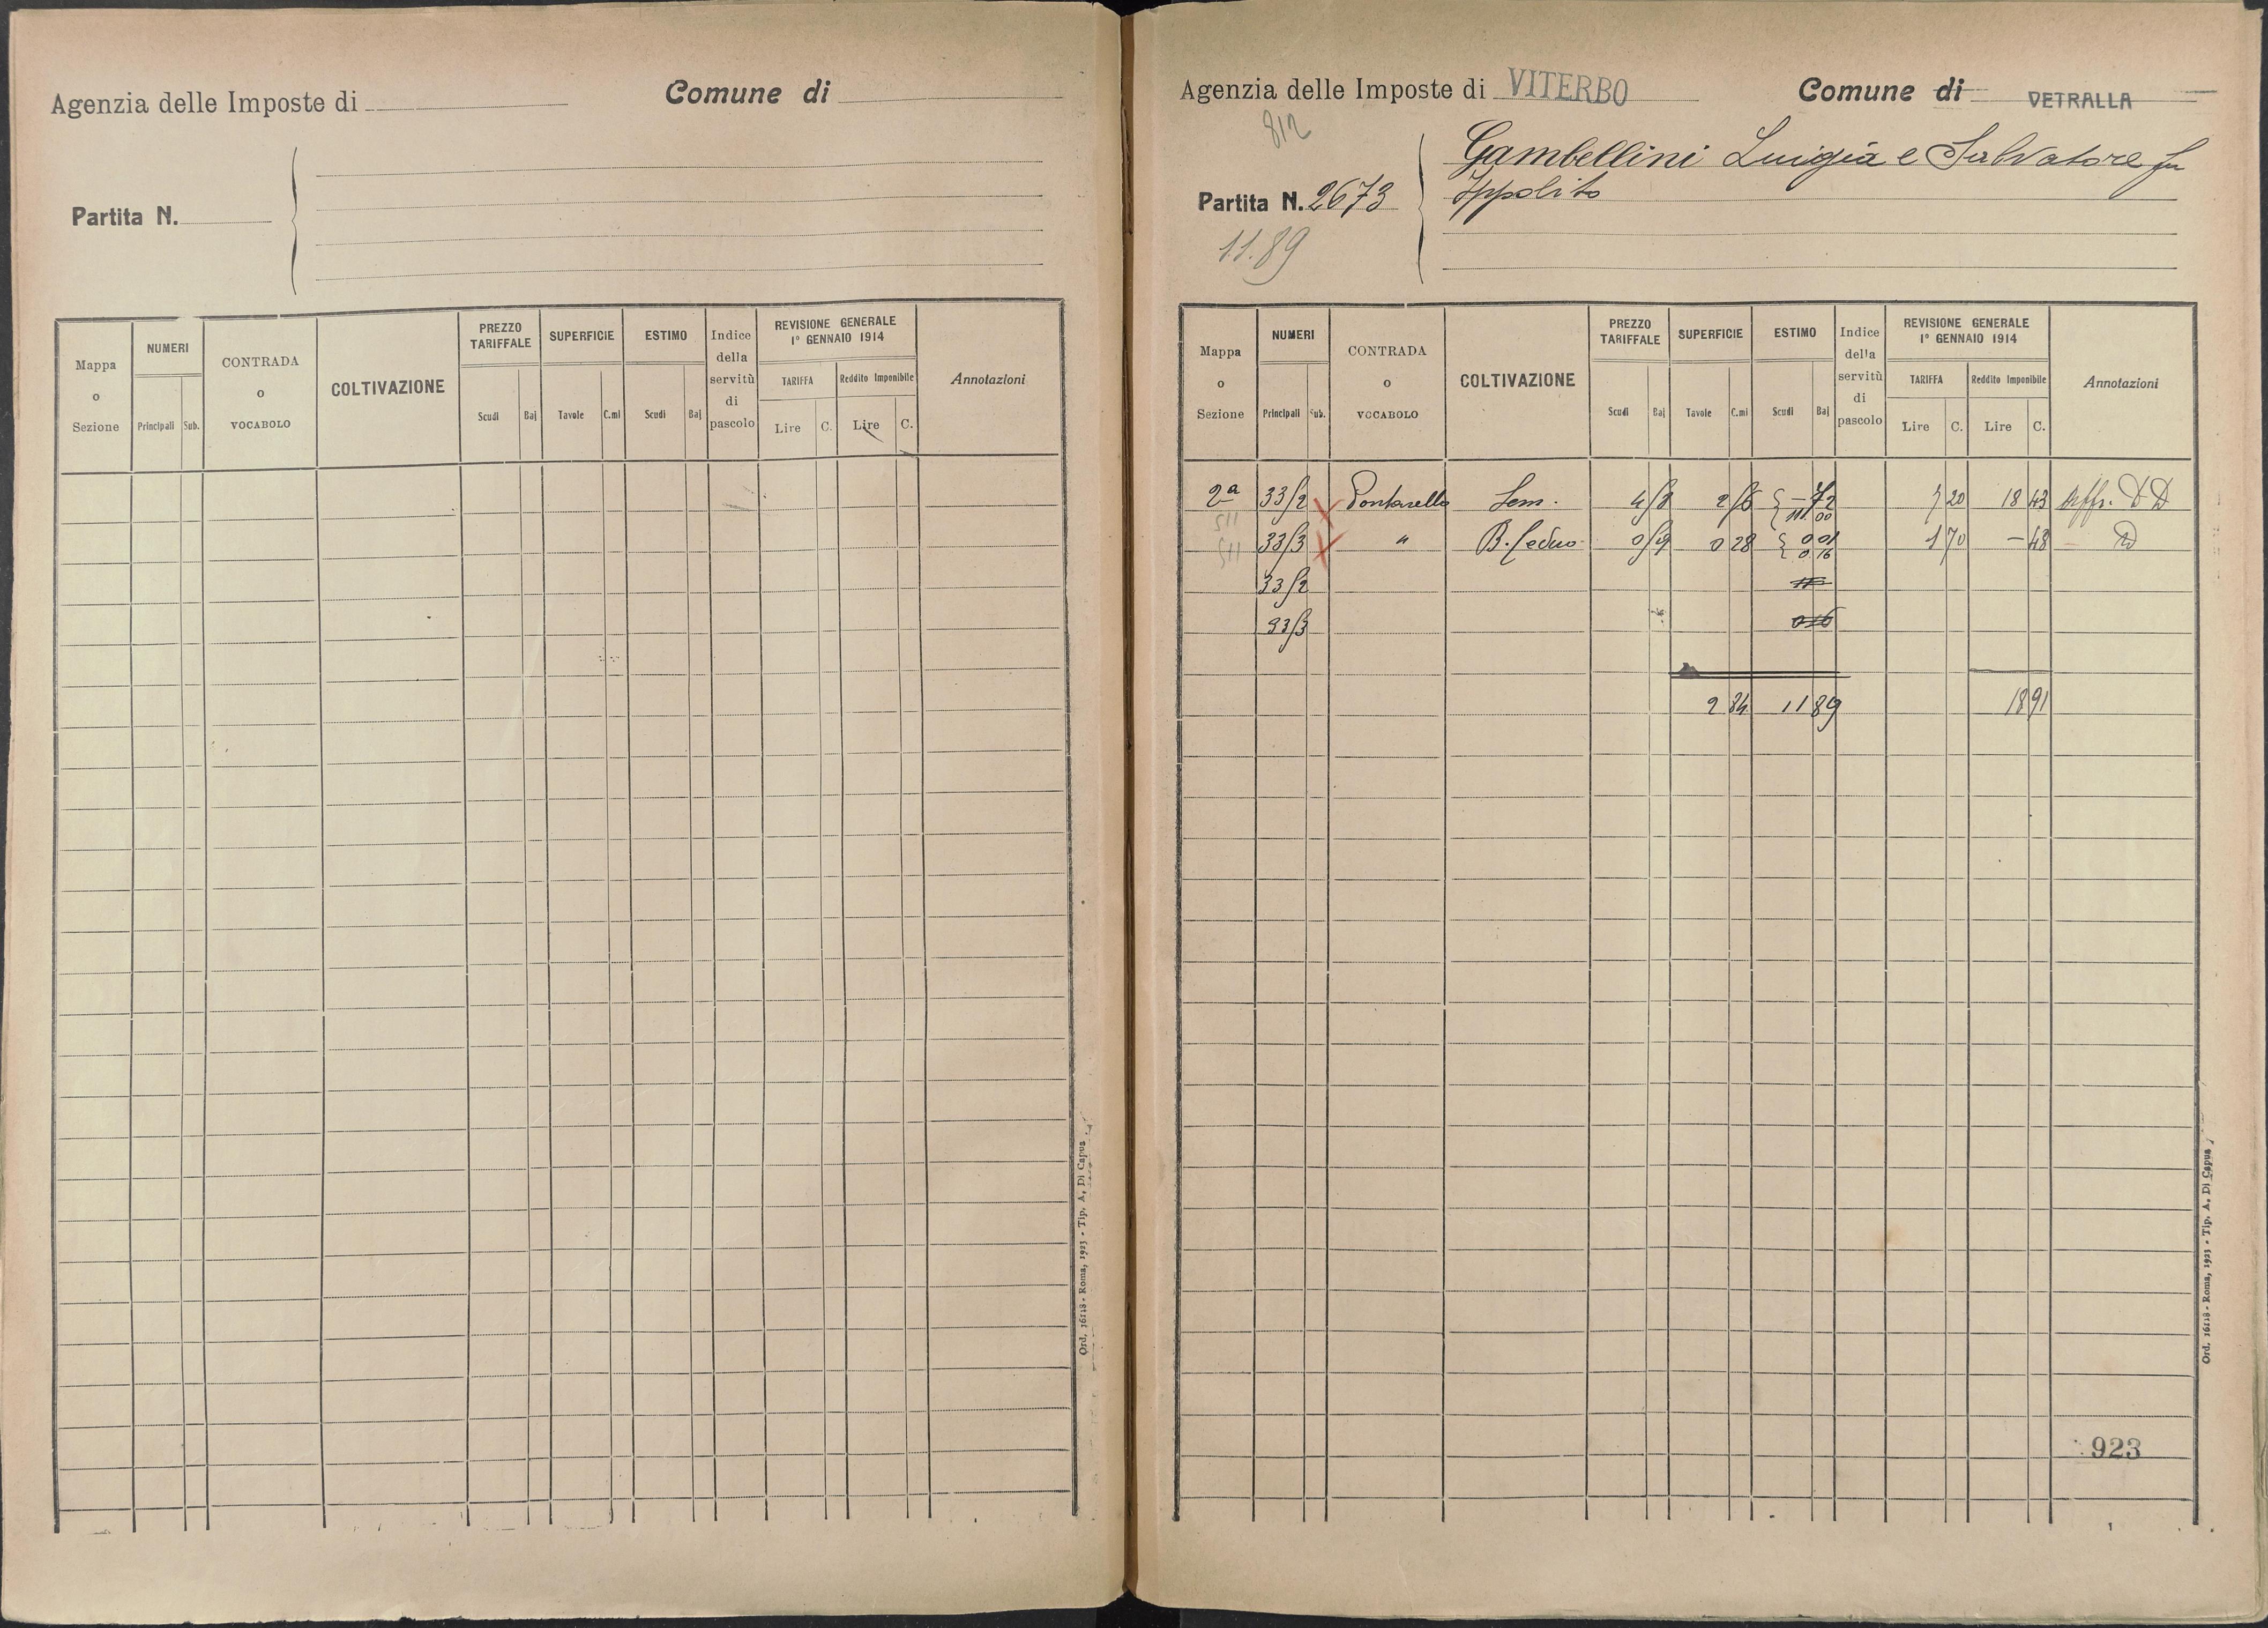 Agenzia delle Imposte di
Comune di
Partita N.
Mappa o Sezione
NUMERI
Principali Sub.
CONTRADA o VOCABOLO
COLTIVAZIONE
PREZZO TARIFFALE
Scudi Baj
SUPERFICIE
Tavole C.mi
ESTIMO
Scudi Baj
Indice della servitù di pascolo
REVISIONE GENERALE
1° GENNAIO 1914
TARIFFA Reddito Imponibile
Lire C. Lire C.
Annotazioni
Ord. 16118 - Roma, 1923 - Tip. A. Di Capua
Agenzia delle Imposte di VITERBO
Comune di VETRALLA
812
Gambellini Luigia e Salvatore fu
Ippolito
Partita N. 2673
11.89
Mappa o Sezione
NUMERI
Principali Sub.
CONTRADA o VOCABOLO
COLTIVAZIONE
PREZZO TARIFFALE
Scudi Baj
SUPERFICIE
Tavole C.mi
ESTIMO
Scudi Baj
Indice della servitù di pascolo
REVISIONE GENERALE
1° GENNAIO 1914
TARIFFA Reddito Imponibile
Lire C. Lire C.
Annotazioni
2a 33/2 Sem. 4/8 2/6 - 72 7 20 18 43
11. 00
33/3 " B. Ceduo 0/9 0 28 0 01 1 70 - 48 D
0 16
33/2
33/3 0 16
2 84 11 89 18 91
923
Ord. 16118 - Roma, 1923 - Tip. A. Di Capua